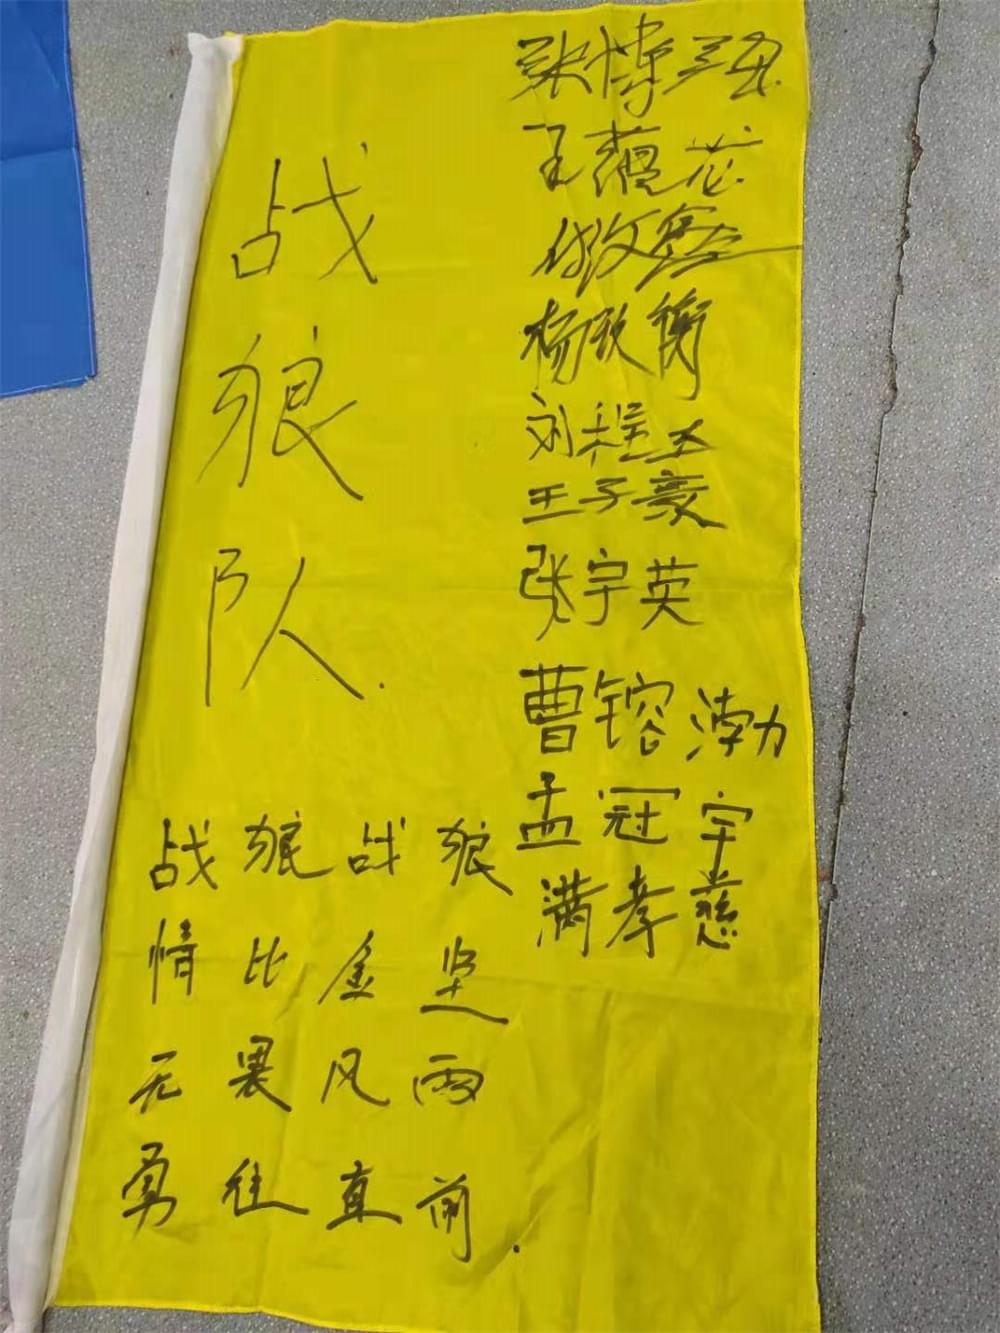 战狼队
战狼战狼
情比金坚
无畏风雨
勇往直前.
张博
王蕴芯
文鑫
杨 衡
刘程
王子豪
张宇英
曹镕渤
孟冠宇
满孝慈